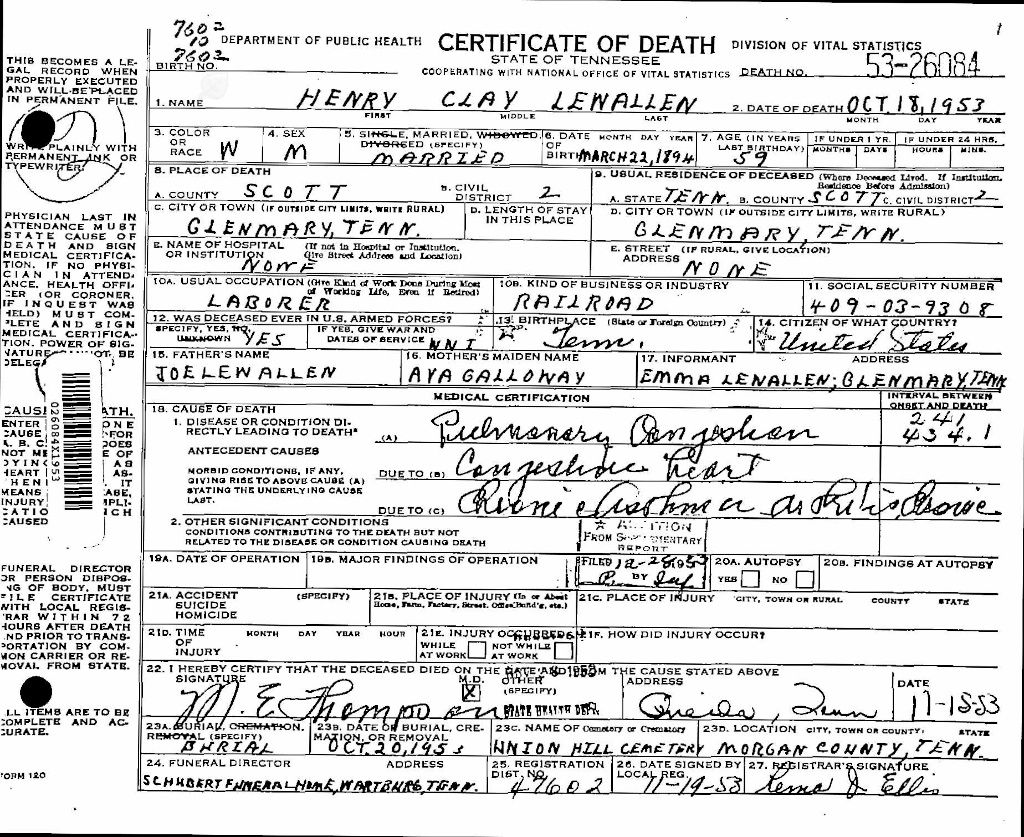 7602
10
7602
DEPARTMENT OF PUBLIC HEALTH CERTIFICATE OF DEATH DIVISION OF VITAL STATISTICS
STATE OF TENNESSEE
BIRTH NO. COOPERATING WITH NATIONAL OFFICE OF VITAL STATISTICS DEATH NO. 53-26084
THIS BECOMES A LE-
GAL RECORD WHEN
PROPERLY EXECUTED
AND WILL BE PLACED
IN PERMANENT FILE.
WRITE PLAINLY WITH
PERMANENT INK OR
TYPEWRITER.
PHYSICIAN LAST IN
ATTENDANCE MUST
STATE CAUSE OF
DEATH AND SIGN
MEDICAL CERTIFICA-
TION. IF NO PHYSI-
CIAN IN ATTEND-
ANCE, HEALTH OFFI-
CER (OR CORONER,
IF INQUEST WAS
HELD) MUST COM-
PLETE AND SIGN
MEDICAL CERTIFICA-
TION. POWER OF SIG-
NATURE NOT BE
DELEGA
026084X1953
FUNERAL DIRECTOR
OR PERSON DISPOS-
NG OF BODY, MUST
FILE CERTIFICATE
WITH LOCAL REGIS-
RAR WITHIN 72
HOURS AFTER DEATH
ND PRIOR TO TRANS-
PORTATION BY COM-
MON CARRIER OR RE-
MOVAL FROM STATE.
LL ITEMS ARE TO BE
COMPLETE AND AC-
CURATE.
FORM 120
1. NAME HENRY CLAY LEWALLEN 2. DATE OF DEATH OCT. 18, 1953
FIRST MIDDLE LAST MONTH DAY YEAR
3. COLOR OR RACE W 4. SEX M 5. SINGLE, MARRIED, WIDOWED, DIVORCED (SPECIFY) MARRIED 6. DATE OF BIRTH MONTH DAY YEAR MARCH 22, 1894 7. AGE (IN YEARS LAST BIRTHDAY) 59 IF UNDER 1 YR. MONTHS DAYS IF UNDER 24 HRS. HOURS MINS.
8. PLACE OF DEATH 9. USUAL RESIDENCE OF DECEASED (Where Deceased Lived. If Institution, Residence Before Admission)
A. COUNTY SCOTT B. CIVIL DISTRICT 2 A. STATE TENN. B. COUNTY SCOTT C. CIVIL DISTRICT 2
C. CITY OR TOWN (IF OUTSIDE CITY LIMITS, WRITE RURAL) GLENMARY, TENN. D. LENGTH OF STAY IN THIS PLACE D. CITY OR TOWN (IF OUTSIDE CITY LIMITS, WRITE RURAL) GLENMARY, TENN.
E. NAME OF HOSPITAL OR INSTITUTION (If not in Hospital or Institution, Give Street Address and Location) NONE E. STREET ADDRESS (IF RURAL, GIVE LOCATION) NONE
10A. USUAL OCCUPATION (Give Kind of Work Done During Most of Working Life, Even If Retired) LABORER 10B. KIND OF BUSINESS OR INDUSTRY RAILROAD 11. SOCIAL SECURITY NUMBER 409-03-9308
12. WAS DECEASED EVER IN U.S. ARMED FORCES? SPECIFY, YES, NO, UNKNOWN YES IF YES, GIVE WAR AND DATES OF SERVICE WWI 13. BIRTHPLACE (State or Foreign Country) Tenn. 14. CITIZEN OF WHAT COUNTRY? United States
15. FATHER'S NAME JOE LEWALLEN 16. MOTHER'S MAIDEN NAME AVA GALLOWAY 17. INFORMANT ADDRESS EMMA LEWALLEN; GLENMARY, TENN
MEDICAL CERTIFICATION INTERVAL BETWEEN ONSET AND DEATH
18. CAUSE OF DEATH 241
1. DISEASE OR CONDITION DIRECTLY LEADING TO DEATH* (A) Pulmonary Congestion 434.1
ANTECEDENT CAUSES
MORBID CONDITIONS, IF ANY, GIVING RISE TO ABOVE CAUSE (A) STATING THE UNDERLYING CAUSE LAST.
DUE TO (B) Congestive heart
DUE TO (C) Chronic Asthma
2. OTHER SIGNIFICANT CONDITIONS
CONDITIONS CONTRIBUTING TO THE DEATH BUT NOT
RELATED TO THE DISEASE OR CONDITION CAUSING DEATH
FROM SUPPLEMENTARY
REPORT
FILED 12-28-1953
BY
19A. DATE OF OPERATION 19B. MAJOR FINDINGS OF OPERATION 20A. AUTOPSY YES NO 20B. FINDINGS AT AUTOPSY
21A. ACCIDENT SUICIDE HOMICIDE (SPECIFY) 21B. PLACE OF INJURY (In or About Home, Farm, Factory, Street, Office Build'g, etc.) 21C. PLACE OF INJURY CITY, TOWN OR RURAL COUNTY STATE
21D. TIME OF INJURY MONTH DAY YEAR HOUR 21E. INJURY OCCURRED WHILE AT WORK NOT WHILE AT WORK 21F. HOW DID INJURY OCCUR?
22. I HEREBY CERTIFY THAT THE DECEASED DIED ON THE DATE AND FROM THE CAUSE STATED ABOVE
SIGNATURE M. E. Thompson M.D. X OTHER (SPECIFY) STATE HEALTH DEPT. ADDRESS Oneida, Tenn DATE 11-18-53
23A. BURIAL, CREMATION, REMOVAL (SPECIFY) BURIAL 23B. DATE OF BURIAL, CREMATION, OR REMOVAL OCT. 20, 1953 23C. NAME OF Cemetery or Crematory UNION HILL CEMETERY 23D. LOCATION CITY, TOWN OR COUNTY: STATE MORGAN COUNTY, TENN.
24. FUNERAL DIRECTOR ADDRESS SCHUBERT FUNERAL HOME, WARTBURG, TENN. 25. REGISTRATION DIST. NO. 47602 26. DATE SIGNED BY LOCAL REG. 11-19-53 27. REGISTRAR'S SIGNATURE Rema J Ellis